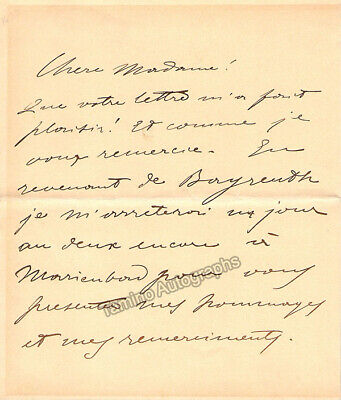 Chere Madame!
Que votre lettre m'a fait
plaisir! Et comme je
vous remercie. En
revenant de Bayreuth
je m'arreterai un jour
au deux encore à
Marienbad pour vous
presenter mes hommages
et mes remerciments.
Tamino Autographs